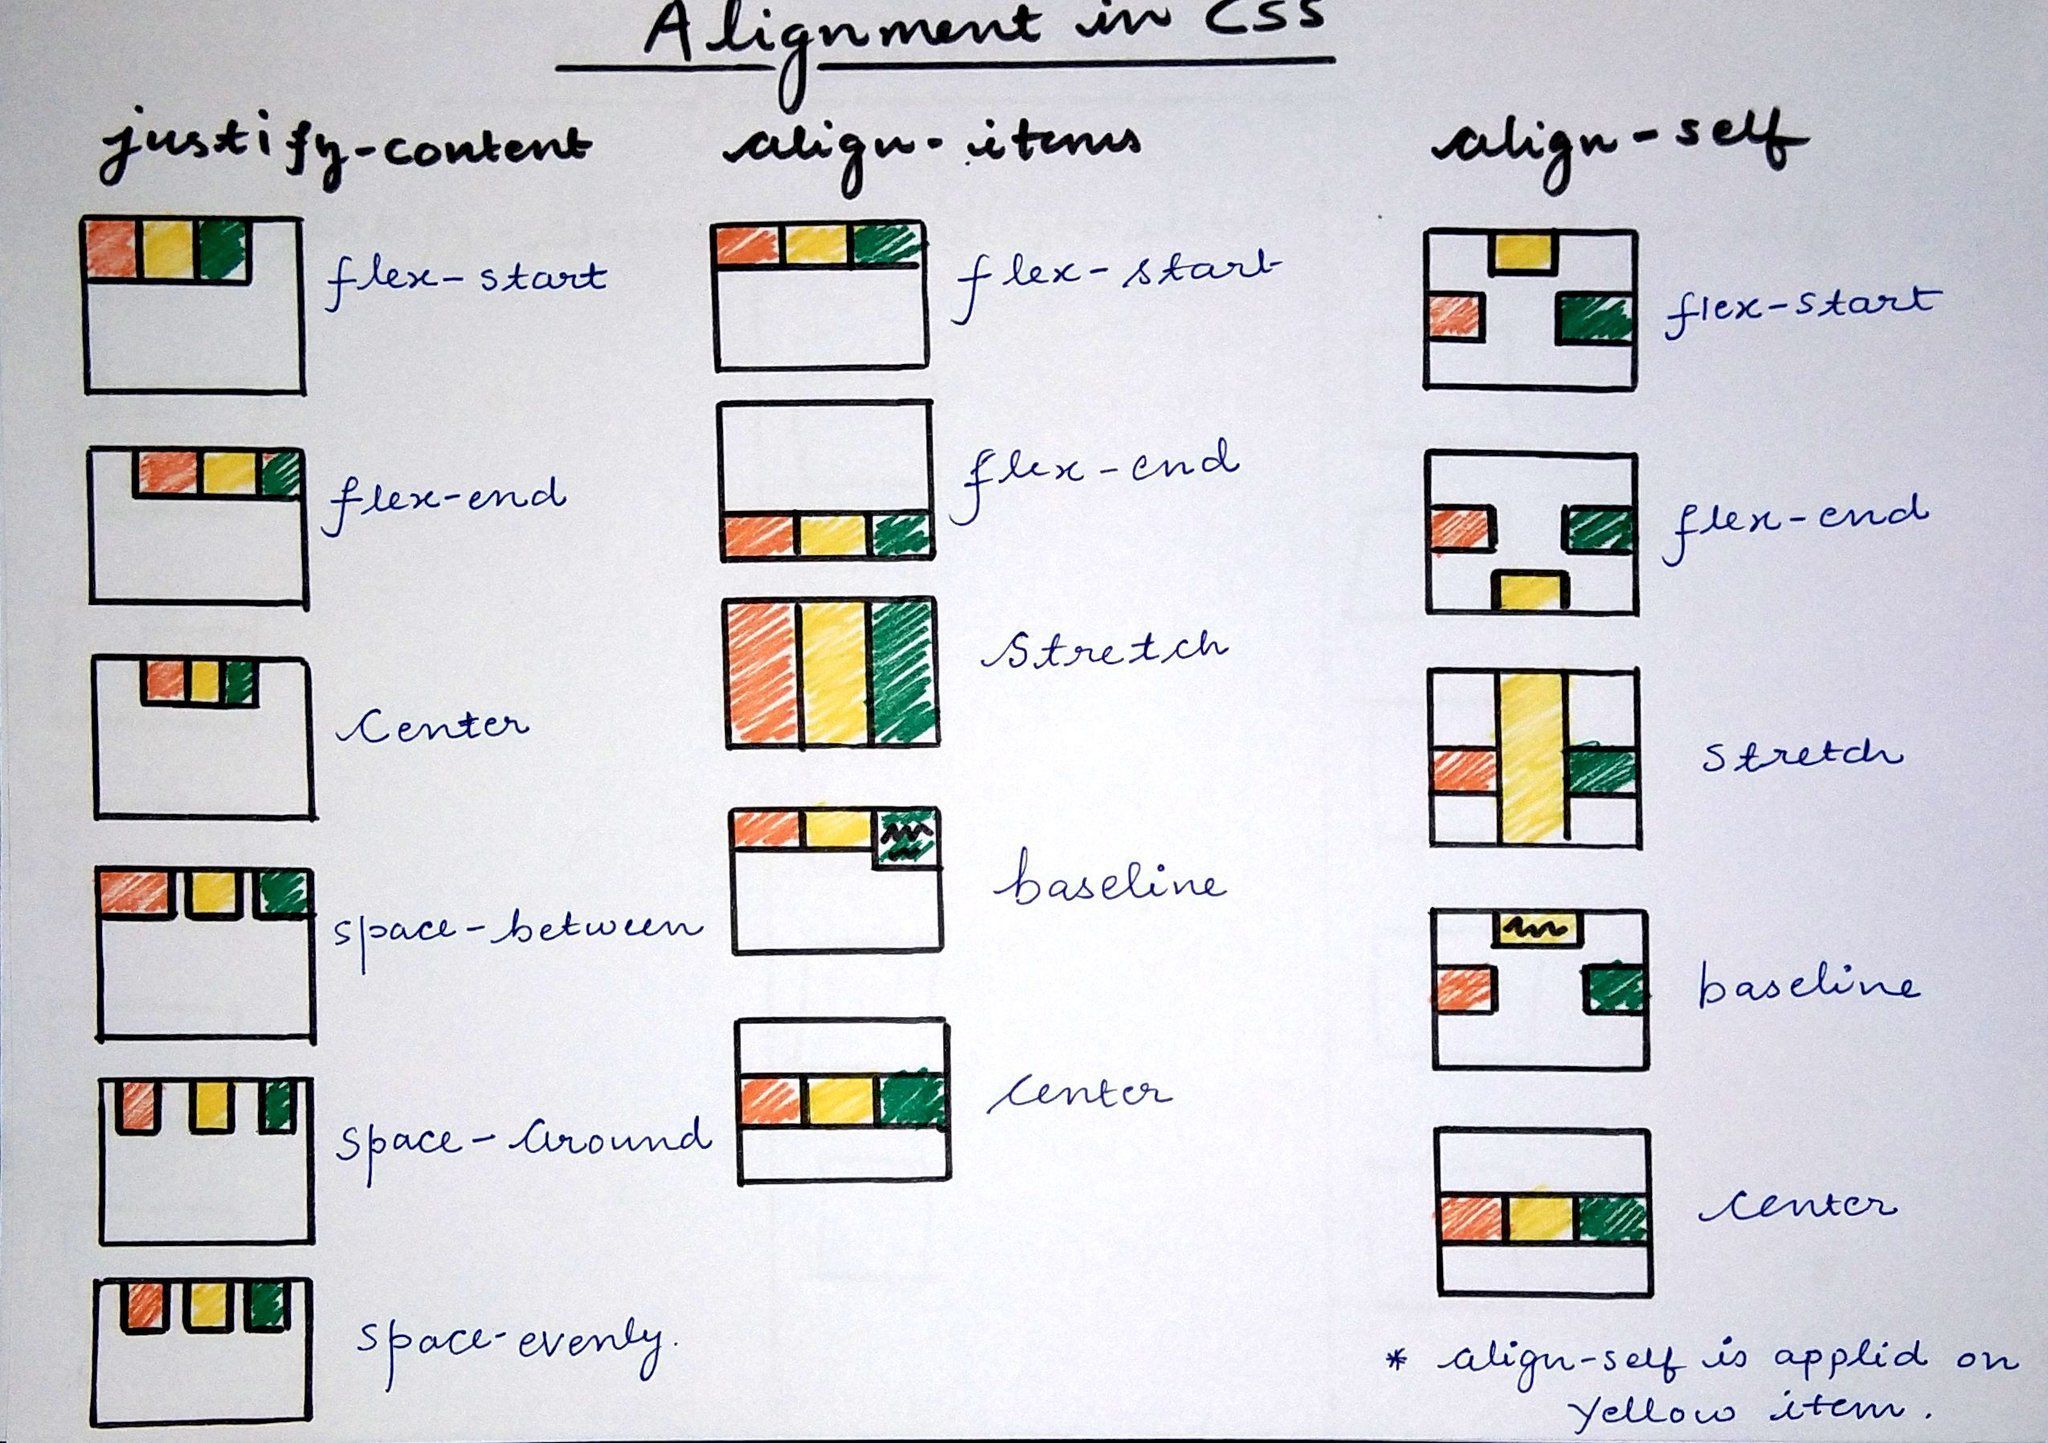 Alignment in CSS
justify-content
flex-start
flex-end
Center
space-between
space-Around
space-evenly.
align-items
flex-start
flex-end
Stretch
baseline
center
align-self
flex-start
flex-end
stretch
baseline
center
* align-self is applid on
yellow item.